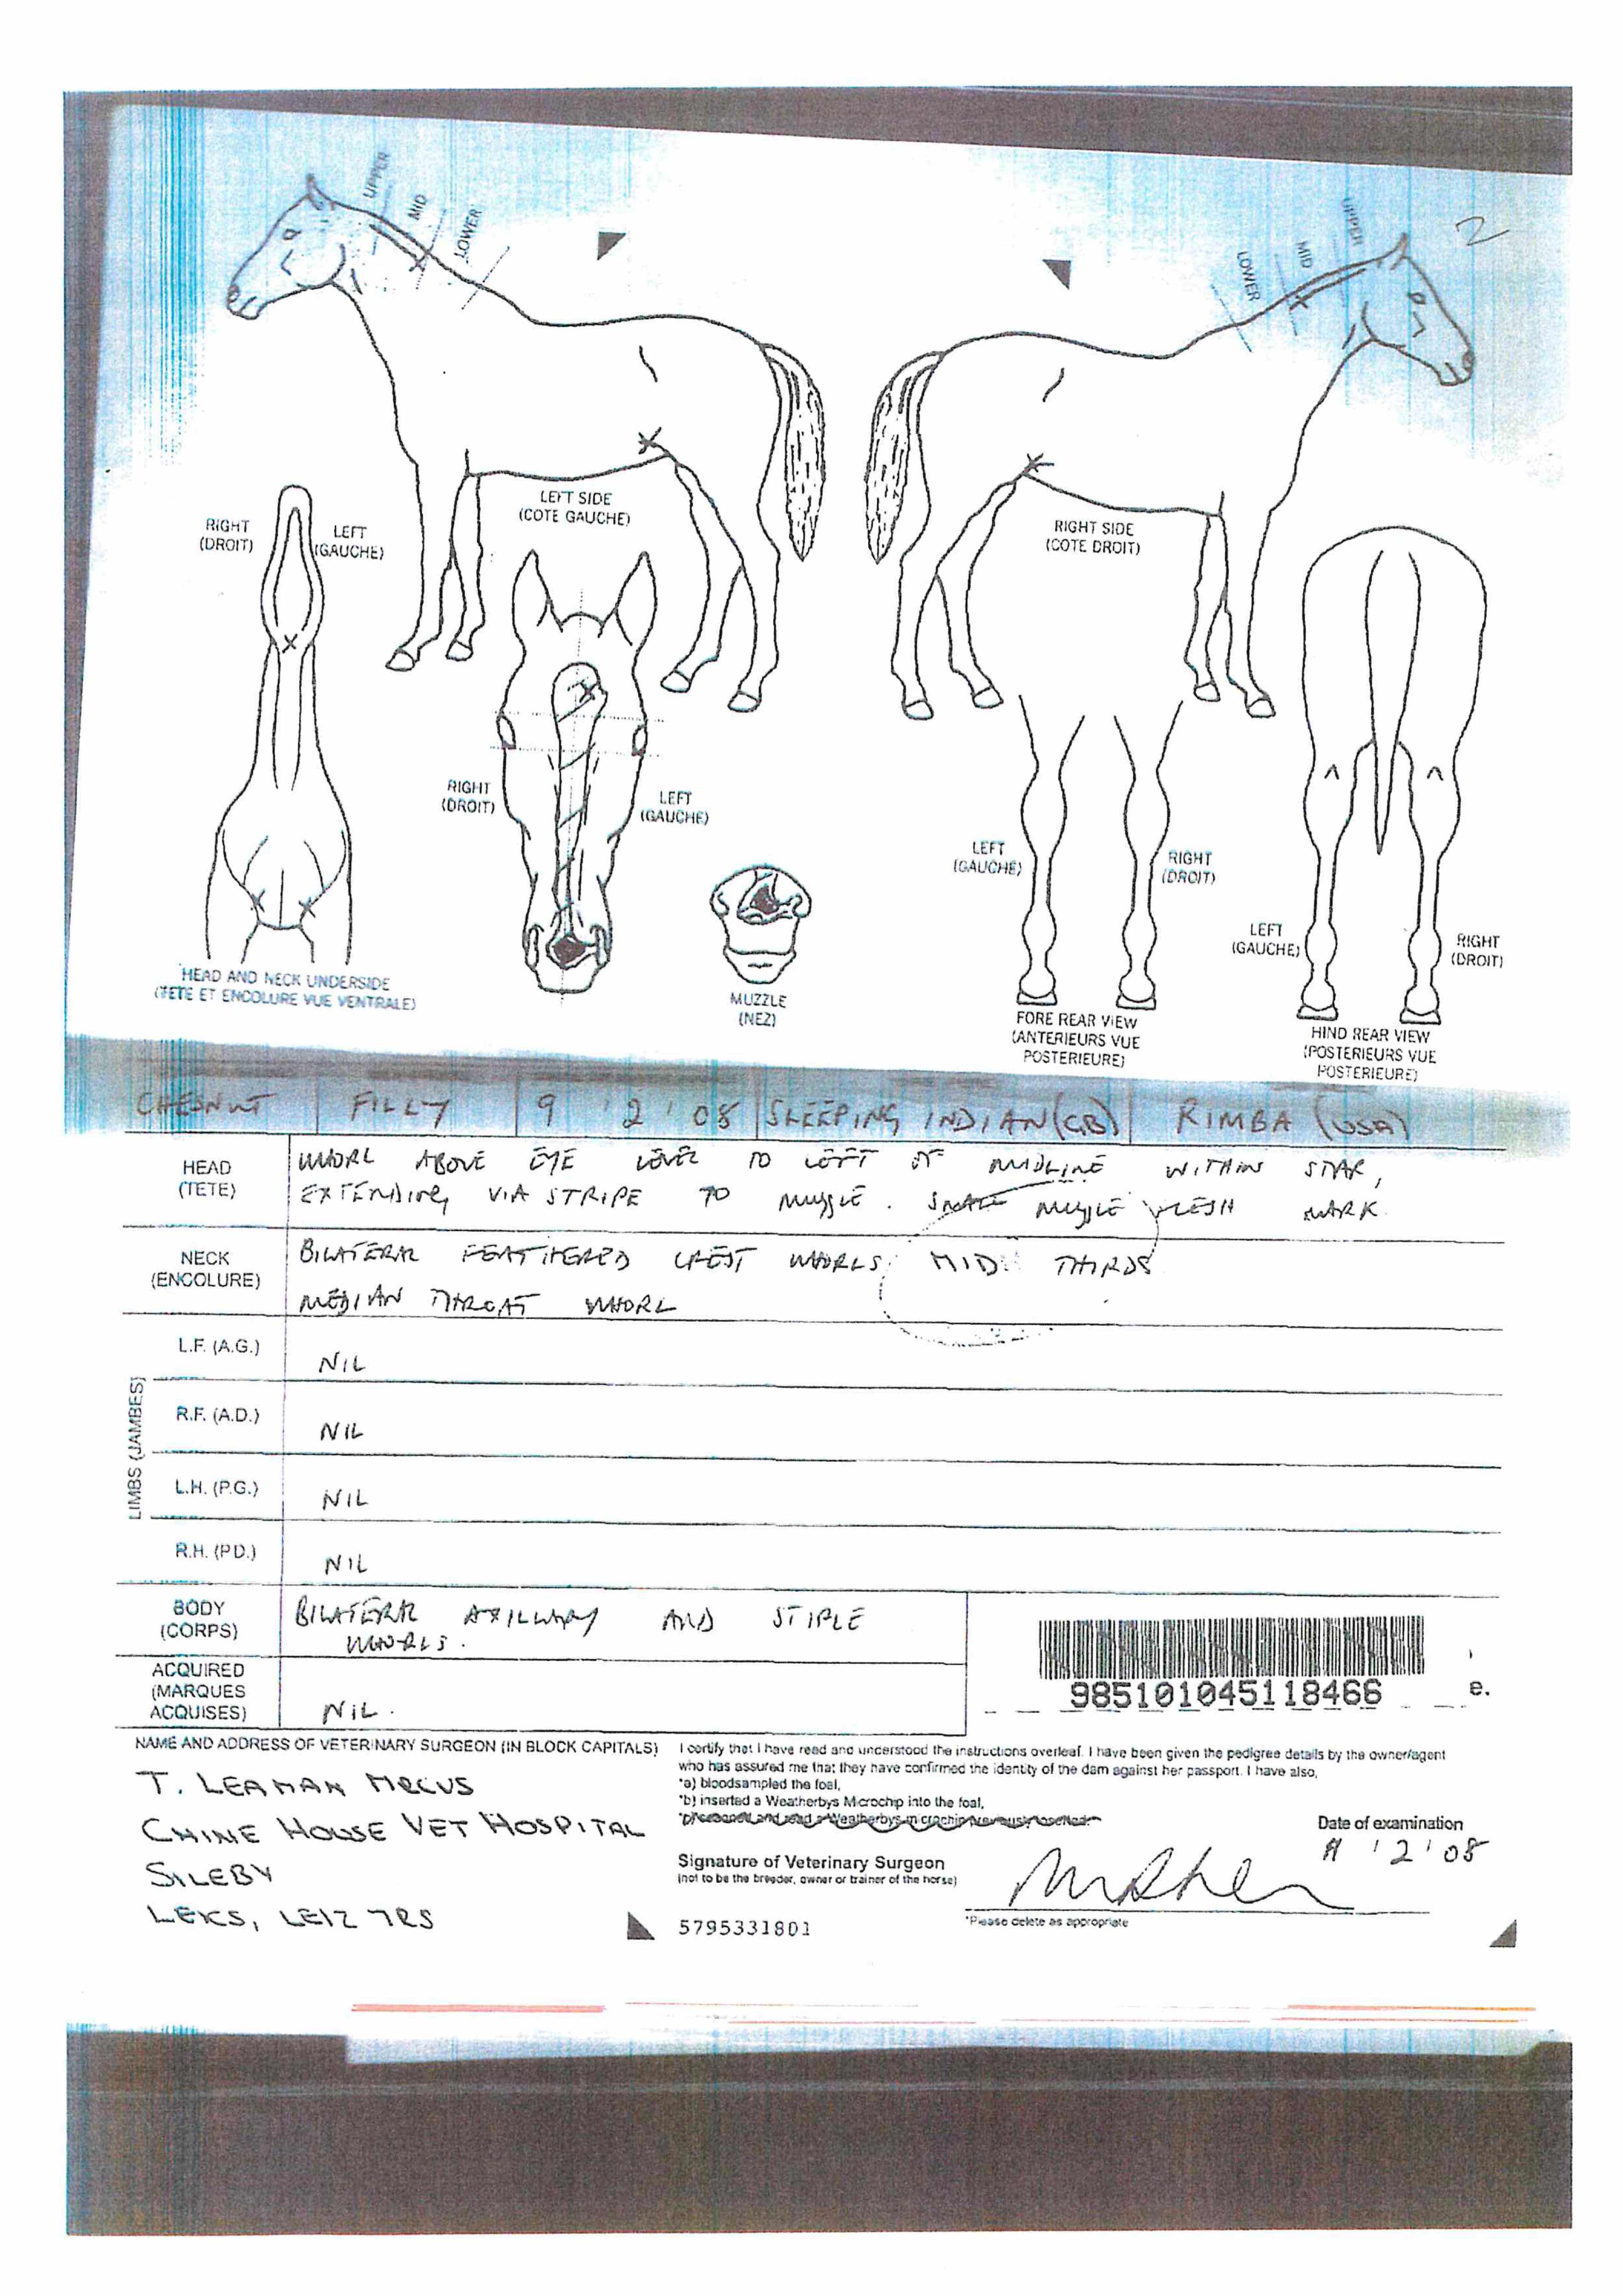 2
UPPER
MID
LOWER
UPPER
MID
LOWER
LEFT SIDE
(COTE GAUCHE)
RIGHT SIDE
(COTE DROIT)
RIGHT
(DROIT)
LEFT
(GAUCHE)
RIGHT
(DROIT)
LEFT
(GAUCHE)
LEFT
(GAUCHE)
RIGHT
(DROIT)
LEFT
(GAUCHE)
RIGHT
(DROIT)
HEAD AND NECK UNDERSIDE
(TETE ET ENCOLURE VUE VENTRALE)
MUZZLE
(NEZ)
FORE REAR VIEW
(ANTERIEURS VUE
POSTERIEURE)
HIND REAR VIEW
(POSTERIEURS VUE
POSTERIEURE)
CHESNUT FILLY 9 '2'08 SLEEPING INDIAN (GB) RIMBA (USA)
HEAD
(TETE)
WHORL ABOVE EYE LEVEL TO LEFT OF MIDLINE WITHIN STAR,
EXTENDING VIA STRIPE TO MUZZLE. SMALL MUZZLE FLESH MARK
NECK
(ENCOLURE)
BILATERAL FEATHERED CREST WHORLS MID THIRDS
MEDIAN THROAT WHORL
LIMBS (JAMBES)
L.F. (A.G.)
NIL
R.F. (A.D.)
NIL
L.H. (P.G.)
NIL
R.H. (P.D.)
NIL
BODY
(CORPS)
BILATERAL AXILLARY AND STIPLE
WHORLS.
ACQUIRED
(MARQUES
ACQUISES)
NIL.
985101045118466
e.
NAME AND ADDRESS OF VETERINARY SURGEON (IN BLOCK CAPITALS)
T. LEAMAN MRCVS
CHINE HOUSE VET HOSPITAL
SILEBY
LEICS, LE12 7RS
I certify that I have read and understood the instructions overleaf. I have been given the pedigree details by the owner/agent
who has assured me that they have confirmed the identity of the dam against her passport. I have also,
*a) bloodsampled the foal,
*b) inserted a Weatherbys Microchip into the foal,
Date of examination
'2'08
Signature of Veterinary Surgeon
(not to be the breeder, owner or trainer of the horse)
*Please delete as appropriate
5795331801